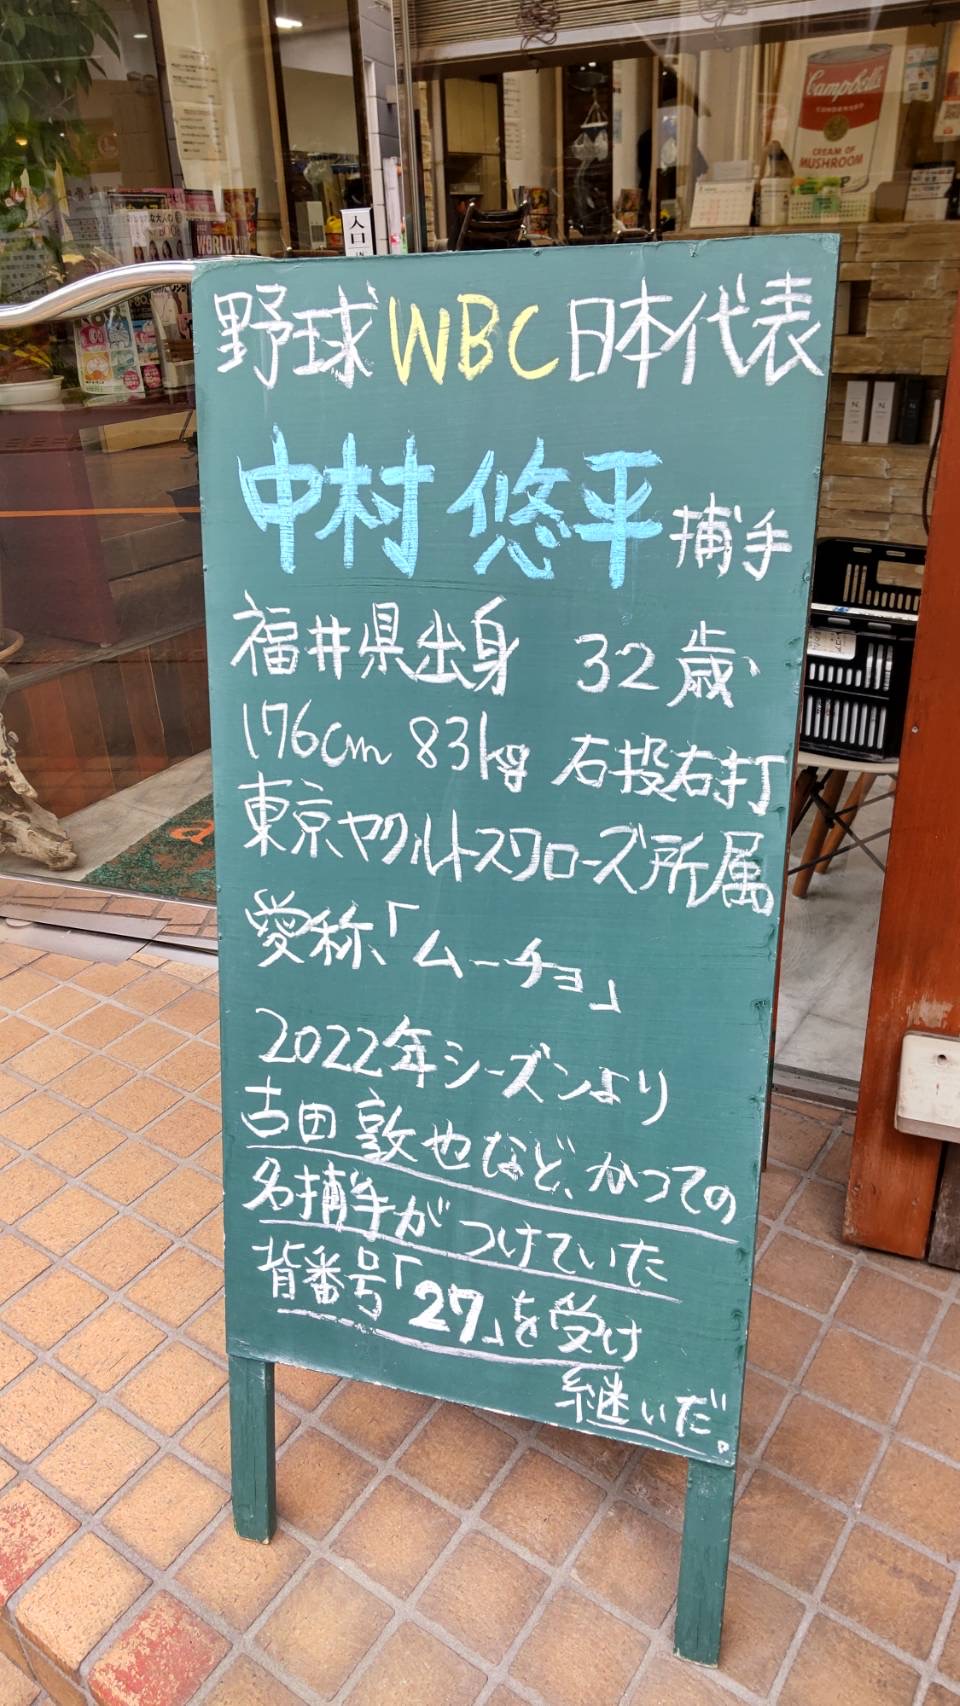 野球WBC日本代表
中村 悠平 捕手
福井県出身 32歳、
176cm 83kg 右投右打
東京ヤクルトスワローズ所属
愛称「ムーチョ」
2022年シーズンより
古田 敦也など、かつての
名捕手がつけていた
背番号「27」を受け
継いだ。
入口
WORLD CU
Campbell's
CONDENSED
CREAM OF
MUSHROOM